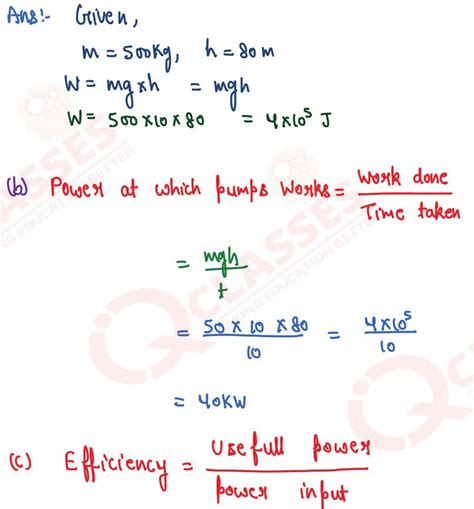 Ans:- Given,
m = 500kg, h = 80m
W = mg×h = mgh
W = 500×10×80 = 4×10⁵ J
(b) Power at which pumps works = work done / Time taken
= mgh / t
= 50 × 10 × 80 / 10 = 4×10⁵ / 10
= 40KW
(c) Efficiency = Usefull power / power input
IQ CLASSES